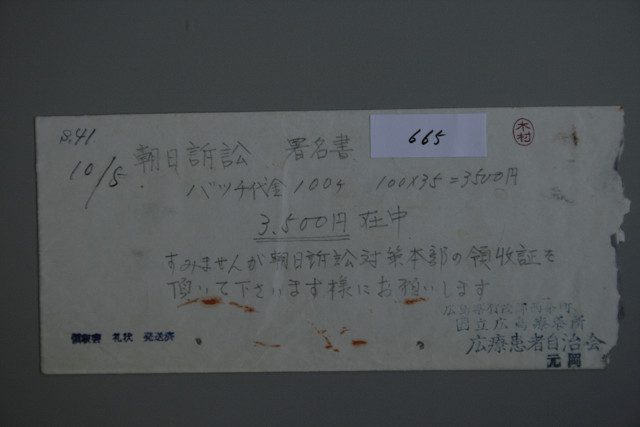 S.41.
10/5
朝日訴訟 署名書
665
木村
バッチ代金 100ケ 100×35=3500円
3.500円在中
すみませんが朝日訴訟対策本部の領収証を
頂いて下さいます様にお願いします
国立広島療養所
広療患者自治会
元岡
領収書 礼状 発送済